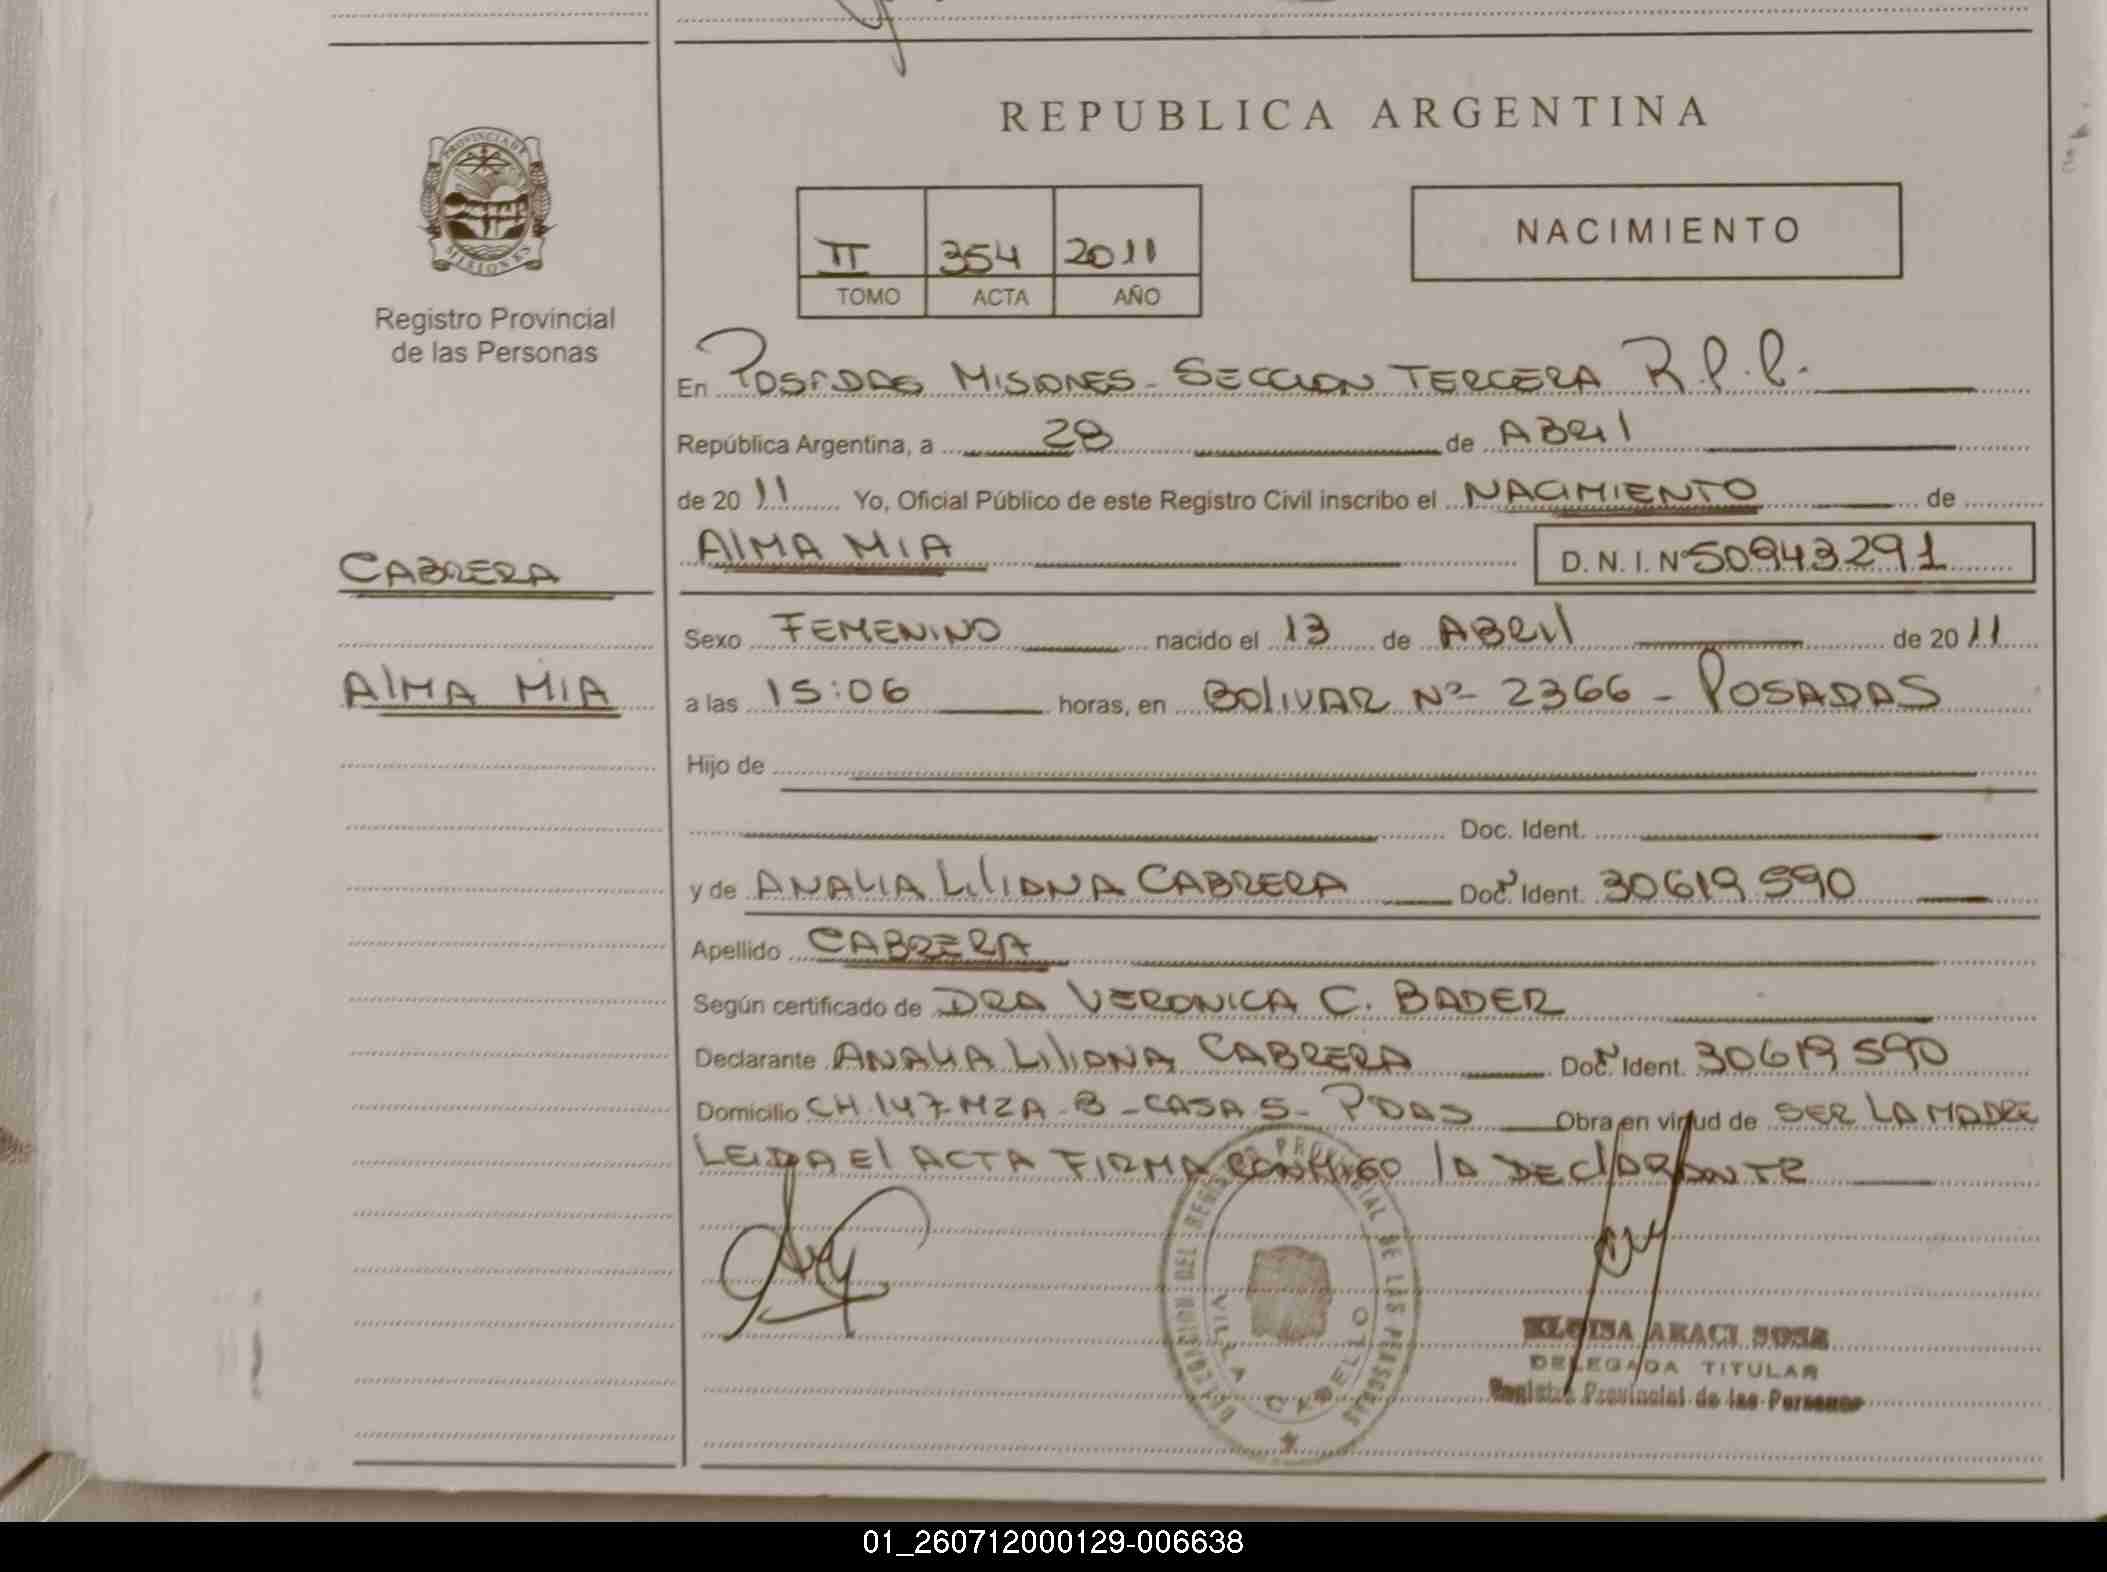 REPUBLICA ARGENTINA
PROVINCIA DE MISIONES
Registro Provincial
de las Personas
II 354 2011
TOMO ACTA AÑO
NACIMIENTO
En POSADAS MISIONES - SECCION TERCERA R.P.P.
República Argentina, a 28 de ABRIL
de 2011 Yo, Oficial Público de este Registro Civil inscribo el NACIMIENTO de
ALMA MIA D.N.I. Nº 50943291
CABRERA
ALMA MIA
Sexo FEMENINO nacido el 13 de ABRIL de 2011
a las 15:06 horas, en BOLIVAR Nº 2366 - POSADAS
Hijo de
Doc. Ident.
y de ANALIA LILIANA CABRERA Doc. Ident. 30619590
Apellido CABRERA
Según certificado de DRA VERONICA C. BADER
Declarante ANALIA LILIANA CABRERA Doc. Ident. 30619590
Domicilio CH.147-MZA-B-CASA 5-PDAS Obra en virtud de SER LA MADRE
LEIDA El ACTA FIRMA CONMIGO la DECLARANTE
DELEGACION DEL REGISTRO PROVINCIAL DE LAS PERSONAS
VILLA CABELLO
ELOISA ARACI SOSA
DELEGADA TITULAR
Registro Provincial de las Personas
01_260712000129-006638